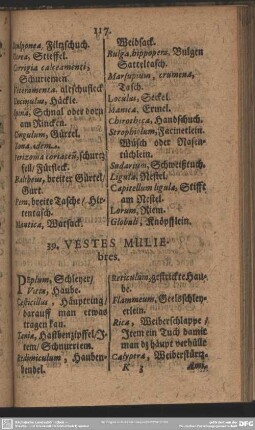 117.
Filtzschuch.
Stieffel.
Corrigia calceamenti,
Schurriemen.
Häckle.
Schnal oder dorn
am Rincken.
Cingulum, Gürtel.
Zona. idem.
fell/ Fürfleck.
Baltheus, breiter Gürtel/
Gurt.
Pera, breite Tasche/ Hir-
tentasch.
Mantica, Watsack.
Weidsack.
Bulga, hippopera, Bulgen
Satteltasch.
Marsupium, crumena,
Tasch.
Loculus, Seckel.
Manica, Ermel.
Chirotheca, Handschuch.
Strophiolum, Facinetlein.
Wüsch oder Nasen-
tüchlein.
Sudarium, Schweißtuch.
Ligula, Nestel.
Capitellum ligulæ, Stefft
am Nestel.
Lorum, Riem.
Globuli, Knöpfflein.
39. VESTES MULIE-
bres.
Peplum, Schleyer/
Vitta, Haube.
Cesticillus, Hauptring/
darauff man etwas
tragen kan.
Tænia, Haßbenzipffel/ I-
tem/ Schnurriem.
Redimiculum, Hauben-
bendel.
Reticulum, gestrickte Hau-
be.
Flammeum, Geelschley-
erlein.
Rica, Weiberschlappe/
Item ein Tuch damit
man dz haupt verhülle
Calyptra, Weiberstürtz.
K